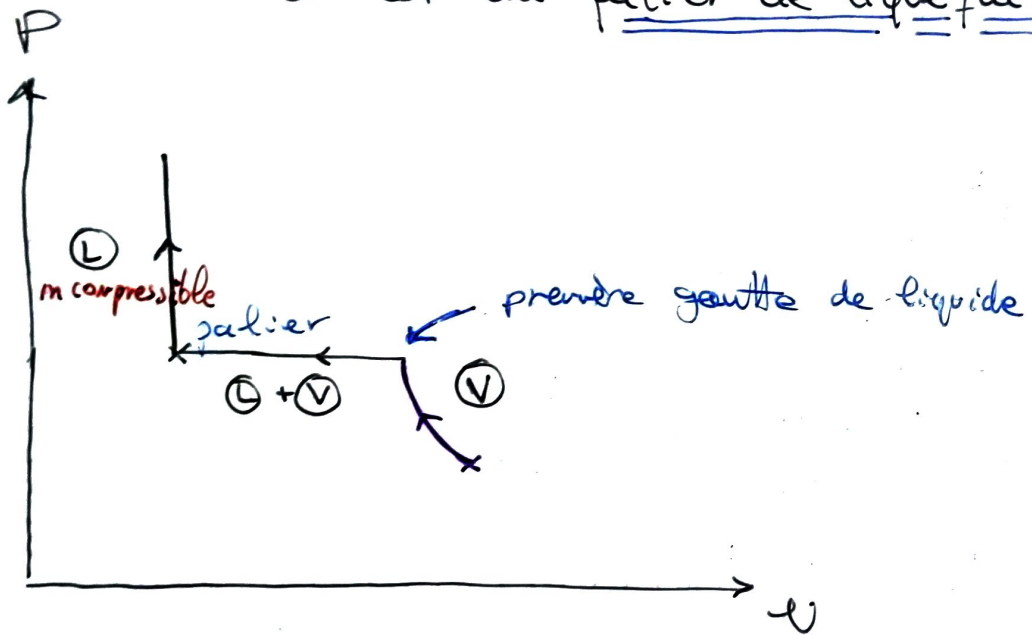 palier de
P
L
incompressible
palier
première goutte de liquide
L + V
V
v